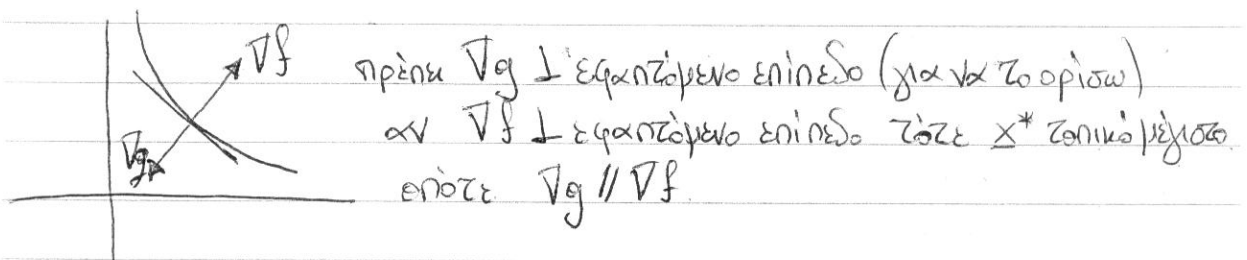 ∇f πρέπει ∇g ⊥ εφαπτόμενο επίπεδο (για να το ορίσω)
αν ∇f ⊥ εφαπτόμενο επίπεδο τότε x* τοπικό μέγιστο
∇g οπότε ∇g // ∇f.